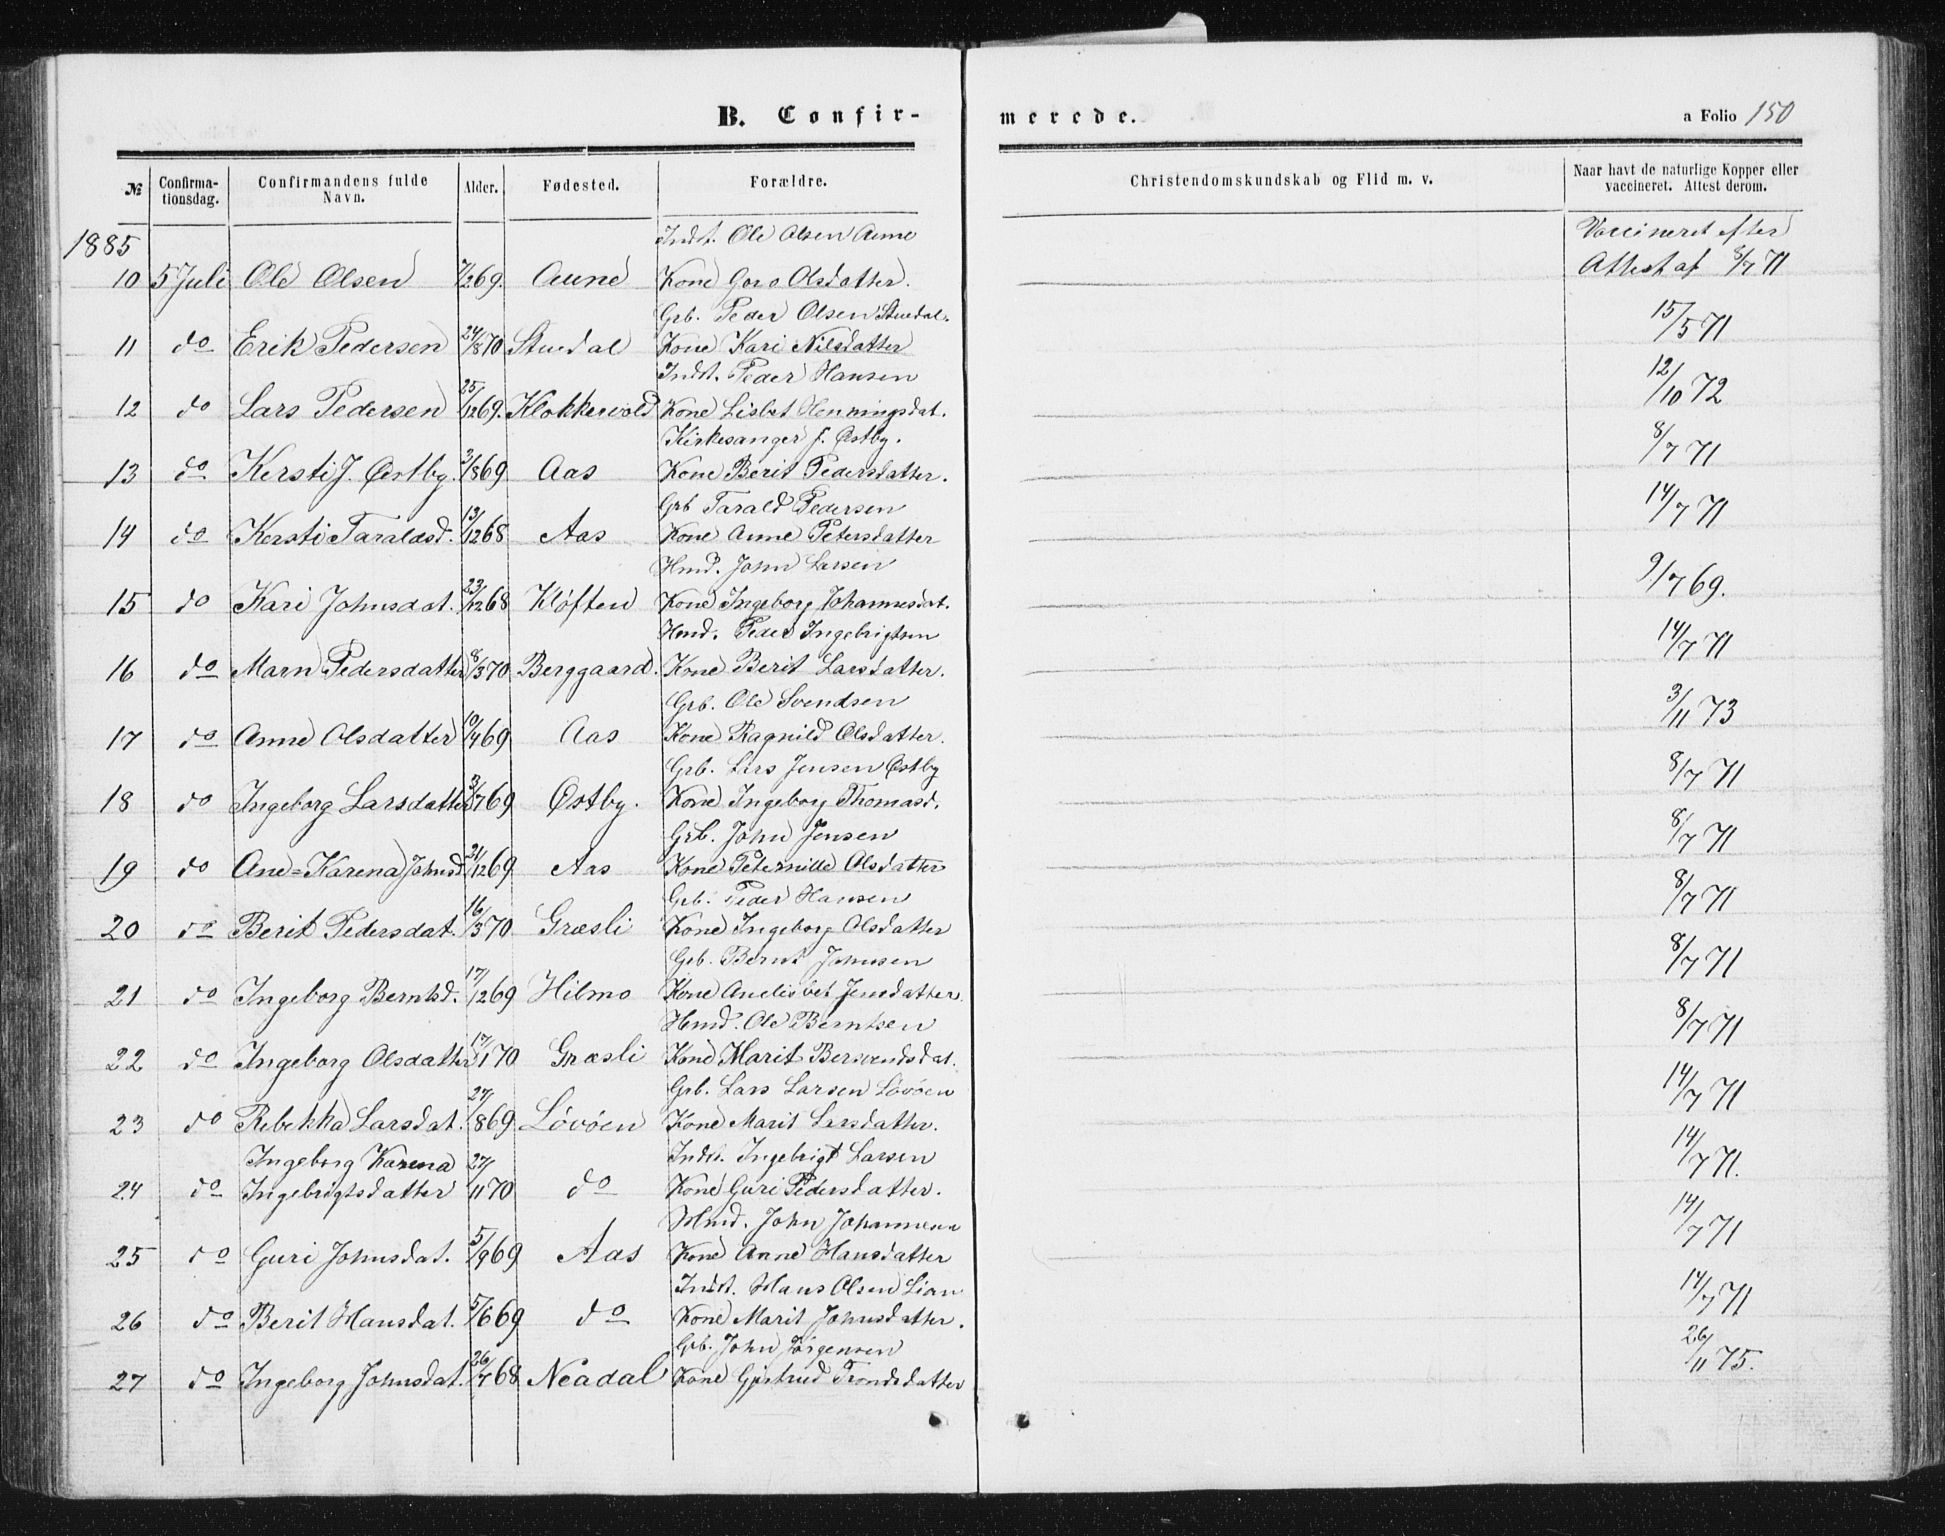 B. Confir-
merede.
a Folio 150
№ Confirma-tionsdag. Confirmandens fulde Navn. Alder. Fødested. Forældre. Christendomskundskab og Flid m. v. Naar havt de naturlige Kopper eller vaccineret. Attest derom.
1885 Indst. Ole Olsen Aune Vaccineret efter
10 5 Juli Ole Olsen 69. Aune Kone Goro Olsdatter. Attest af 8/7 71
Grb. Peder Olsen Stuedal.
11 do Erik Pedersen 24/8 70 Stuedal Kone Kari Nilsdatter 15/5 71
Indst. Peder Hansen
12 do Lars Pedersen 25/12 69. Klokkervold Kone Lisbet Henningsdat. 12/10 72
Kirkesanger J. Østby.
13 do Kersti J. Østby. 3/8 69 Aas Kone Berit Pedersdatter. 8/7 71
Grb Tarald Pedersen
14 do Kersti Taraldsd. 13/12 68 Aas Kone Anne Petersdatter 14/7 71
Hmd. John Larsen
15 do Kari Johnsdat. 23/12 68 Kløften Kone Ingeborg Johannesdat. 9/7 69.
Hmd. Peder Ingebrigtsen
16 do Marn Pedersdatter 8/3 70 Berggaard. Kone Berit Larsdatter. 14/7 71
Grb. Ole Svendsen
17 do Anne Olsdatter 10/4 69 Aas Kone Ragnild Olsdatter. 3/11 73
Grb. Lars Jensen Østby
18 do Ingeborg Larsdatter 3/7 69 Østby. Kone Ingeborg Thomasd. 8/7 71
Grb. John Jensen
19 do Ane=Karena Johnsd. 21/12 69 Aas Kone Peternille Olsdatter 8/7 71
Grb. Peder Hansen
20 do Berit Pedersdat. 16/3 70 Græsli Kone Ingeborg Olsdatter 8/7 71
Grb. Bernt Johnsen
21 do Ingeborg Berntsd. 17/12 69 Hilmo Kone Anelisbet Jensdatter. 8/7 71
Hmd. Ole Berntsen
22 do Ingeborg Olsdatter 17/1 70 Græsli Kone Marit Bersvendsdat. 8/7 71
Grb. Lars Larsen Løvøen
23 do Rebekka Larsdat. 27/8 69 Løvøen Kone Marit Larsdatter. 14/7 71
Ingeborg Karena Indst. Ingebrigt Larsen
24 do Ingebrigtsdatter 27/11 70 do Kone Guri Pedersdatter. 14/7 71.
Hmd. John Johannesen
25 do Guri Johnsdat. 5/9 69 Aas Kone Anne Hansdatter 14/7 71
Indst. Hans Olsen Lien
26 do Berit Hansdat. 5/6 69 do Kone Marit Johnsdatter. 14/7 71
Grb. John Jørgensen
27 do Ingeborg Johnsdat. 26/7 68 Neadal Kone Gjertrud Trondsdatter 26/11 75.